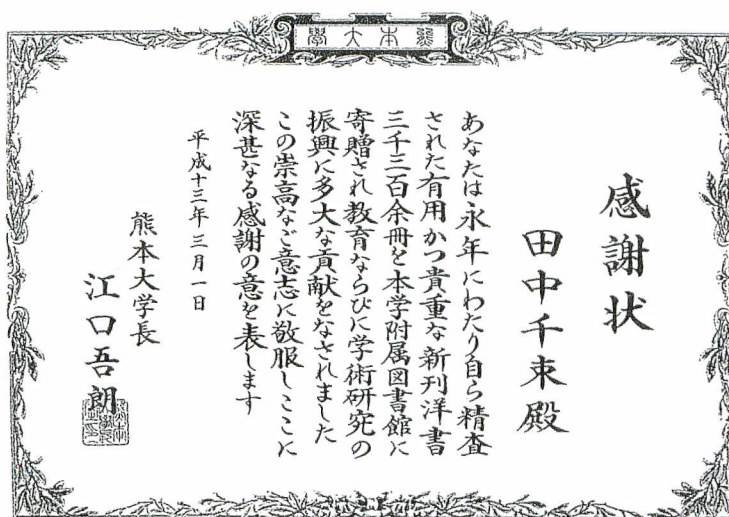 學大本熊
感謝状
田中千束殿
あなたは永年にわたり自ら精査
された有用かつ貴重な新刊洋書
三千三百余冊を本学附属図書館に
寄贈され教育ならびに学術研究の
振興に多大な貢献をなされました
この崇高なご意志に敬服しここに
深甚なる感謝の意を表します
平成十三年三月一日
熊本大学長
江口吾朗